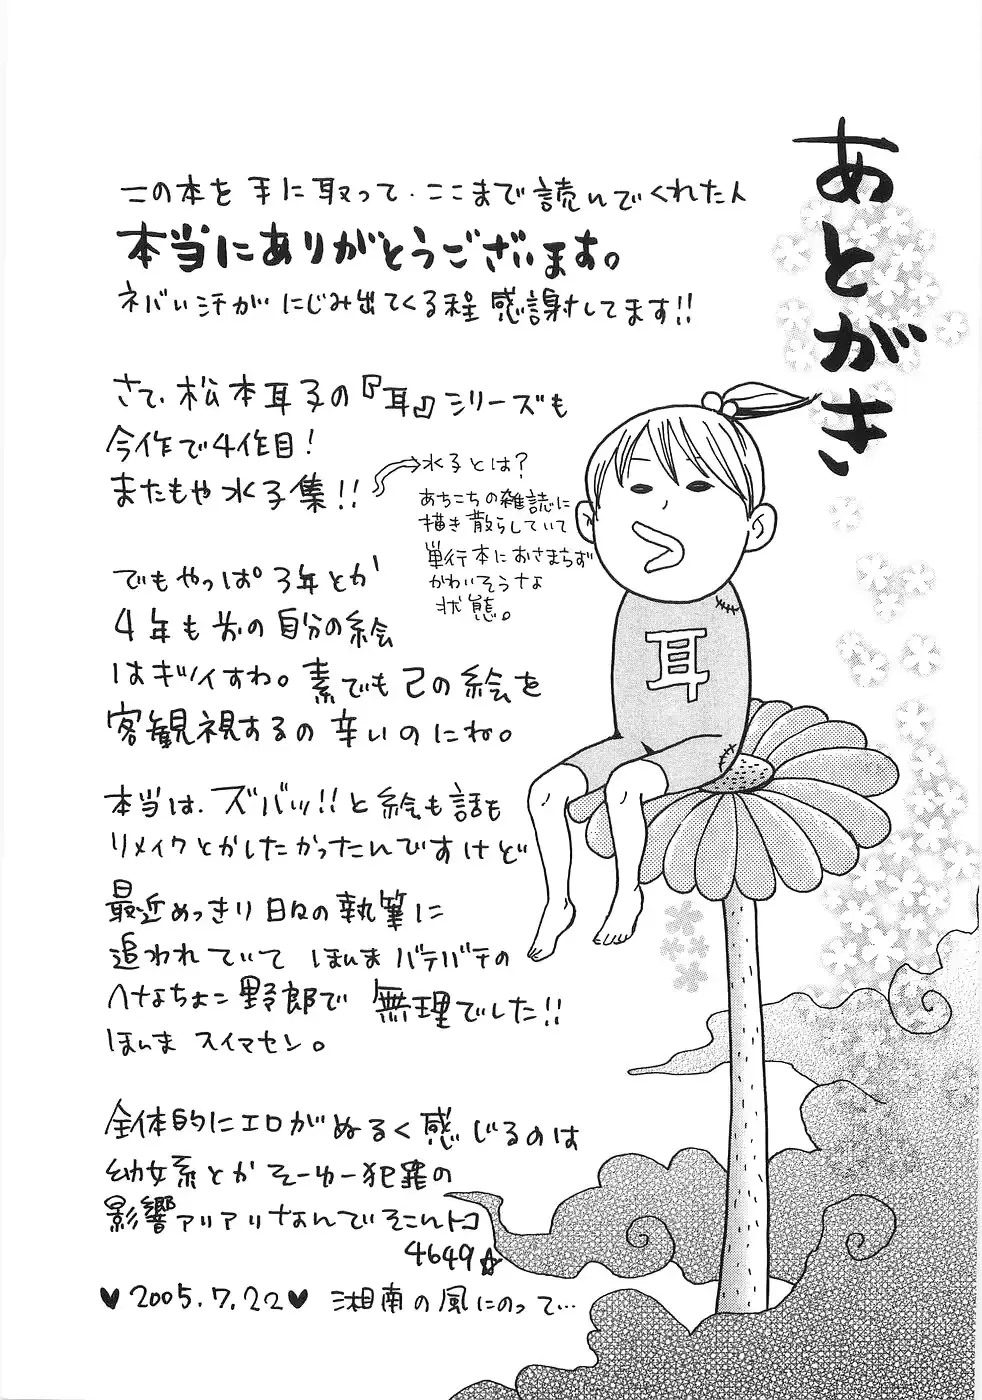 あとがき
この本を手に取って、ここまで読んでくれた人
本当にありがとうございます。
ネバい汗がにじみ出てくる程感謝してます!!
さて、松本耳子の『耳』シリーズも
今作で4作目!
またもや水子集!!
→水子とは?
あちこちの雑誌に
描き散らしていて
単行本におさまらず
かわいそうな
状態。
でもやっぱ3年とか
4年も前の自分の絵
はギツイすわ。素でも己の絵を
客観視するの辛いのにね。
本当は、ズバッ!!と絵も話も
リメイクとかしたかったんですけど
最近めっきり日々の執筆に
追われていてほんまバテバテの
へなちょこ野郎で無理でした!!
ほんまスイマセン。
全体的にエロがぬるく感じるのは
幼女系とかそーゆー犯罪の
影響アリアリなんでそこんトコ
4649☆
♥2005.7.22♥ 湘南の風にのって…
耳